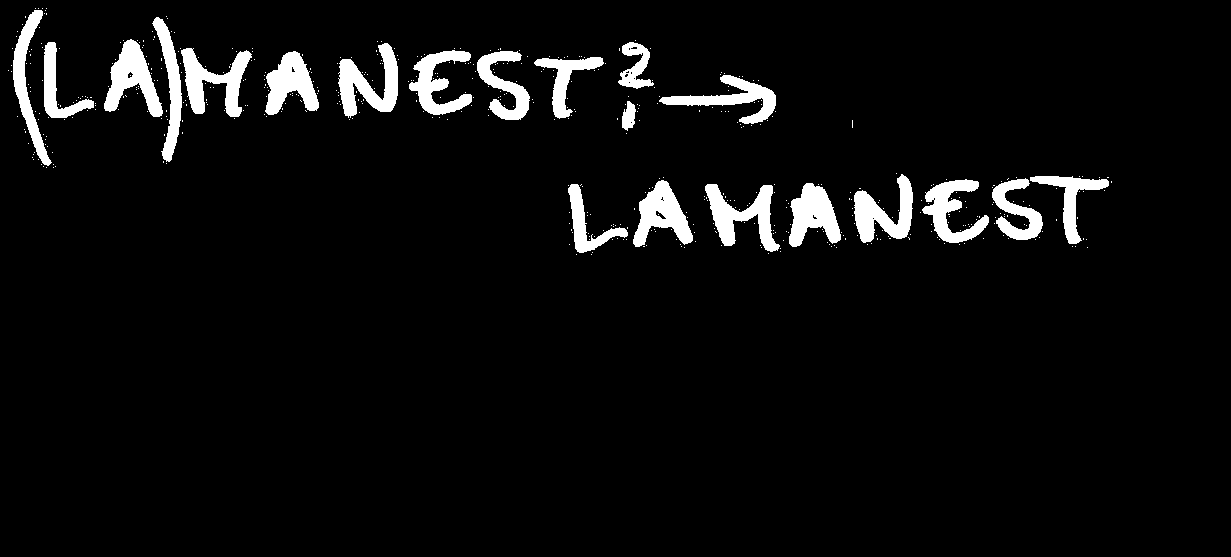 (LA)MANEST? →
LAMANEST